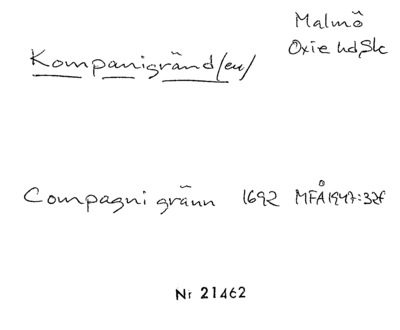 Malmö
Oxie hd, Sk
Kompanigränd/en/
Compagni gränn 1692 MFÅ 1947:32f
Nr 21462